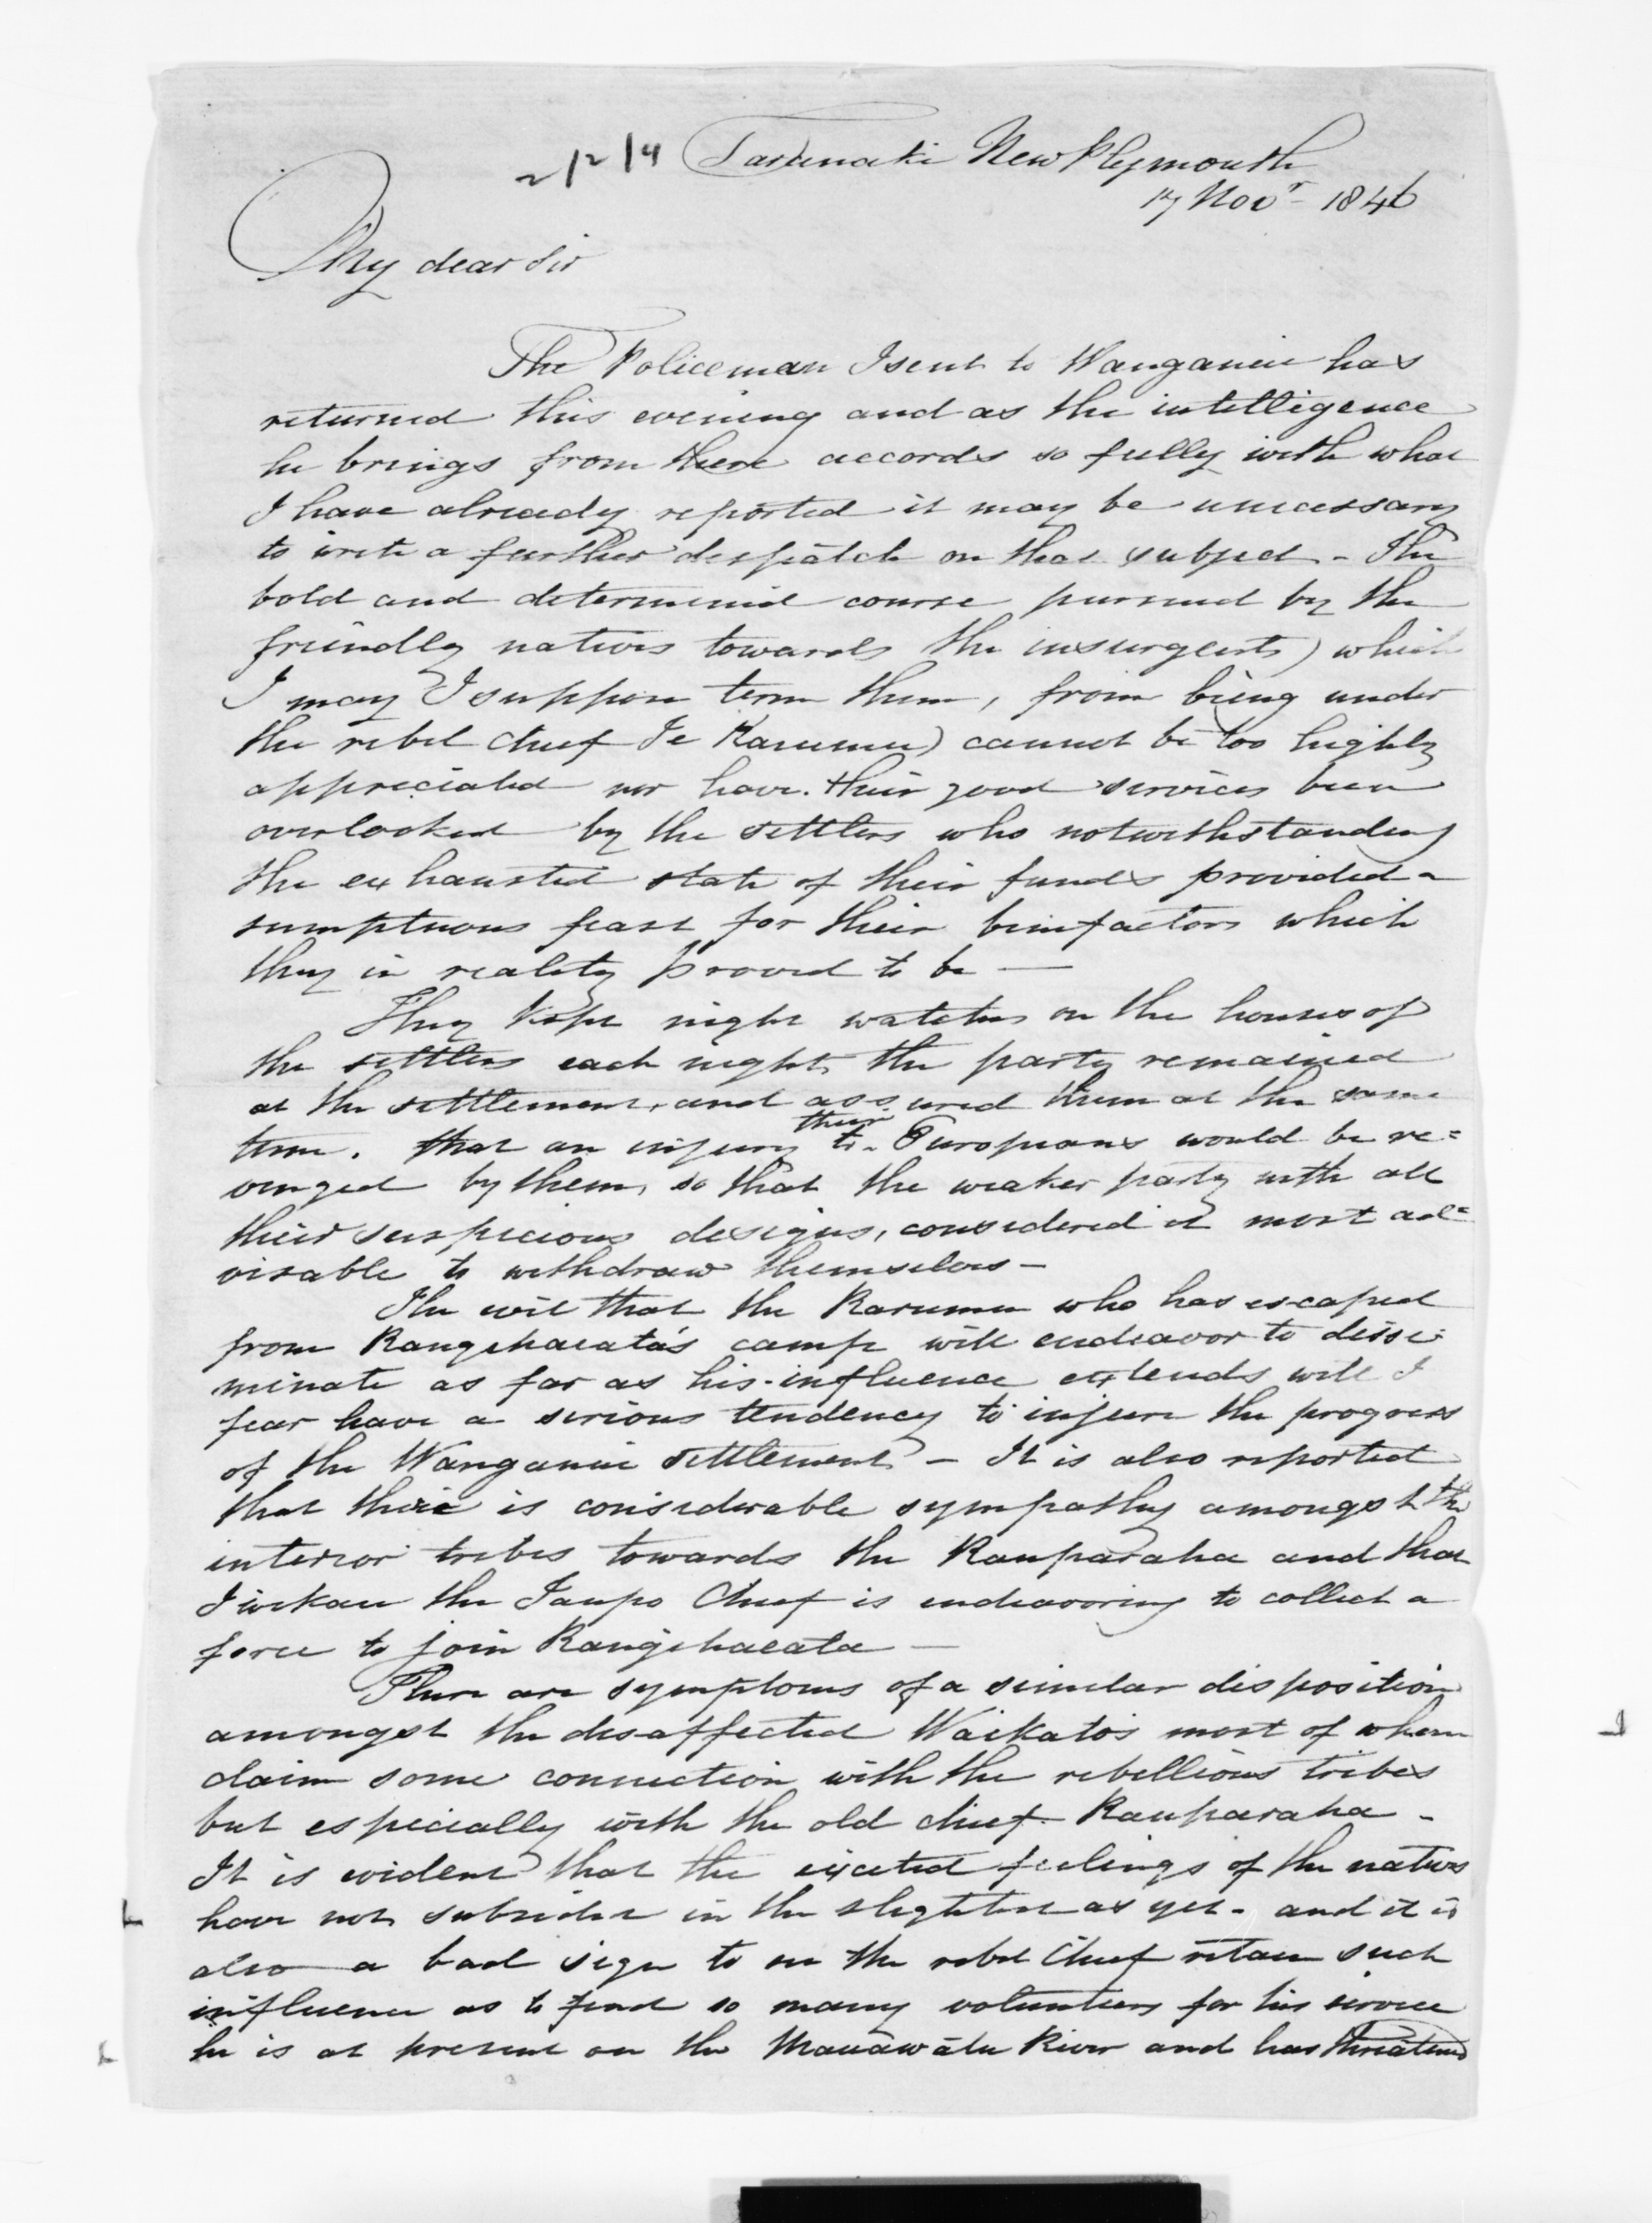 2/2/4 Taranaki New Plymouth
17 Novr 1846
My dear Sir
The Policeman I sent to Wanganui has
returned this evening and as the intelligence
he brings from there accords so fully with what
I have already reported it may be unnecessary
to write a further despatch on that subject - The
bold and determined course pursued by the
friendly natives towards the insurgents) which
I may I suppose term them, from being under
the rebel chief Te Karumu) cannot be too highly
appreciated nor have their good services been
overlooked by the settlers who notwithstanding
the exhausted state of their funds provided a
sumptuous feast for their benefactors which
they in reality proved to be —
They kept night watches on the houses of
the settlers each night the party remained
at the settlement, and assured them at the same
time. that an injury to their Europeans would be re=
venged by them, so that the weaker party with all
their suspicious designs, considered it most ad=
visable to withdraw themselves —
The evil that the Karumu who has escaped
from Rangihaeata's camp will endeavor to disse=
minate as far as his influence extends will I
fear have a serious tendency to injure the progress
of the Wanganui settlement — It is also reported
that there is considerable sympathy amongst the
interior tribes towards the Rauparaha and that
Iwikau the Taupo Chief is endeavoring to collect a
force to join Rangihaeata —
There are symptoms of a similar disposition
amongst the disaffected Waikato's most of whom
claim some connection with the rebellious tribes
but especially with the old chief Rauparaha -
It is evident that the excited feelings of the natives
have not subsided in the slightest as yet - and it is
also a bad sign to see the rebel Chief retain such
influence as to find so many volunteers for his service
he is at present on the Manawātu River and has threatened